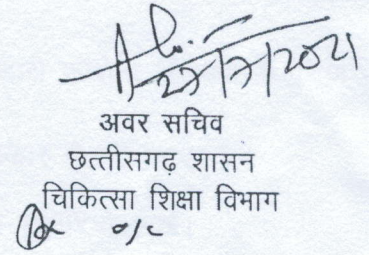 27/7/2021
अवर सचिव
छत्तीसगढ़ शासन
चिकित्सा शिक्षा विभाग